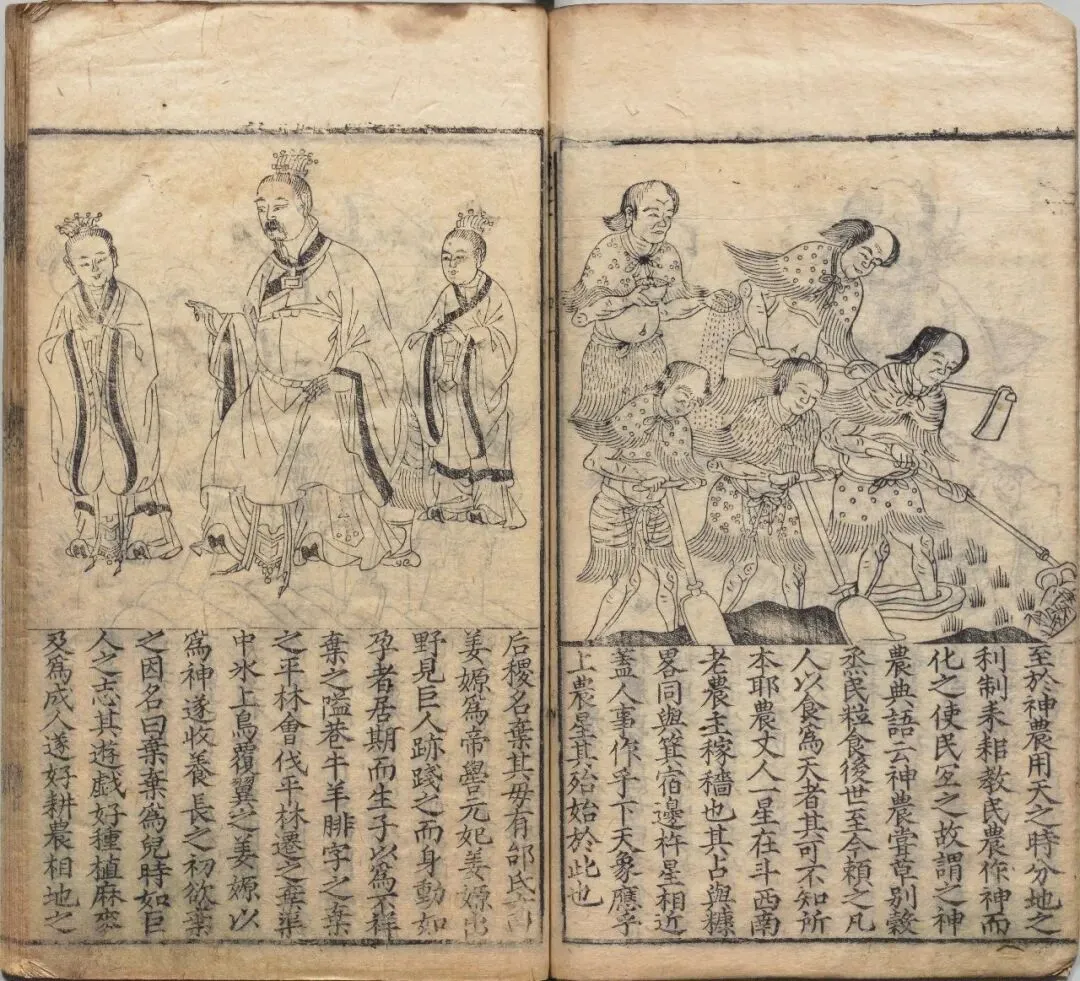 至於神農用天之時分地之
利制耒耜教民農作神而
化之使民冝之故謂之神
農典語云神農甞草別穀
烝民粒食後世至今賴之凡
人以食爲天者其可不知所
本耶農丈人一星在斗西南
老農主稼穡也其占與糠
畧同與箕宿邊杵星相近
蓋人事作乎下天象應乎
上農星其殆始於此也
后稷名棄其毋有邰氏女曰
姜嫄爲帝嚳元妃姜嫄出
野見巨人跡踐之而身動如
孕者居期而生子以爲不祥
棄之隘巷牛羊腓字之棄
之平林會伐平林遷之棄渠
中氷上鳥覆翼之姜嫄以
爲神遂收養長之初欲棄
之因名曰棄棄爲兒時如巨
人之志其遊戲好種植麻麥
及爲成人遂好耕農相地之